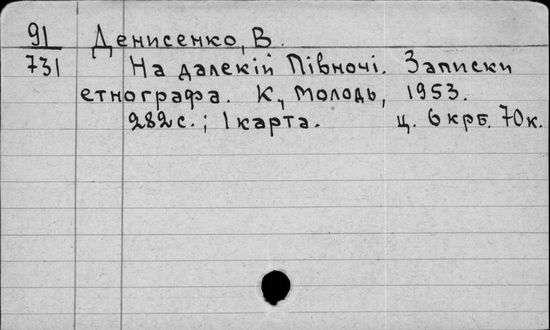 91 Денисенко, В.
731 На далекій Півночі. Записки
етнографа. К., Молодь, 1953.
282 с.; 1 карта. ц. 6 крб. 70 к.